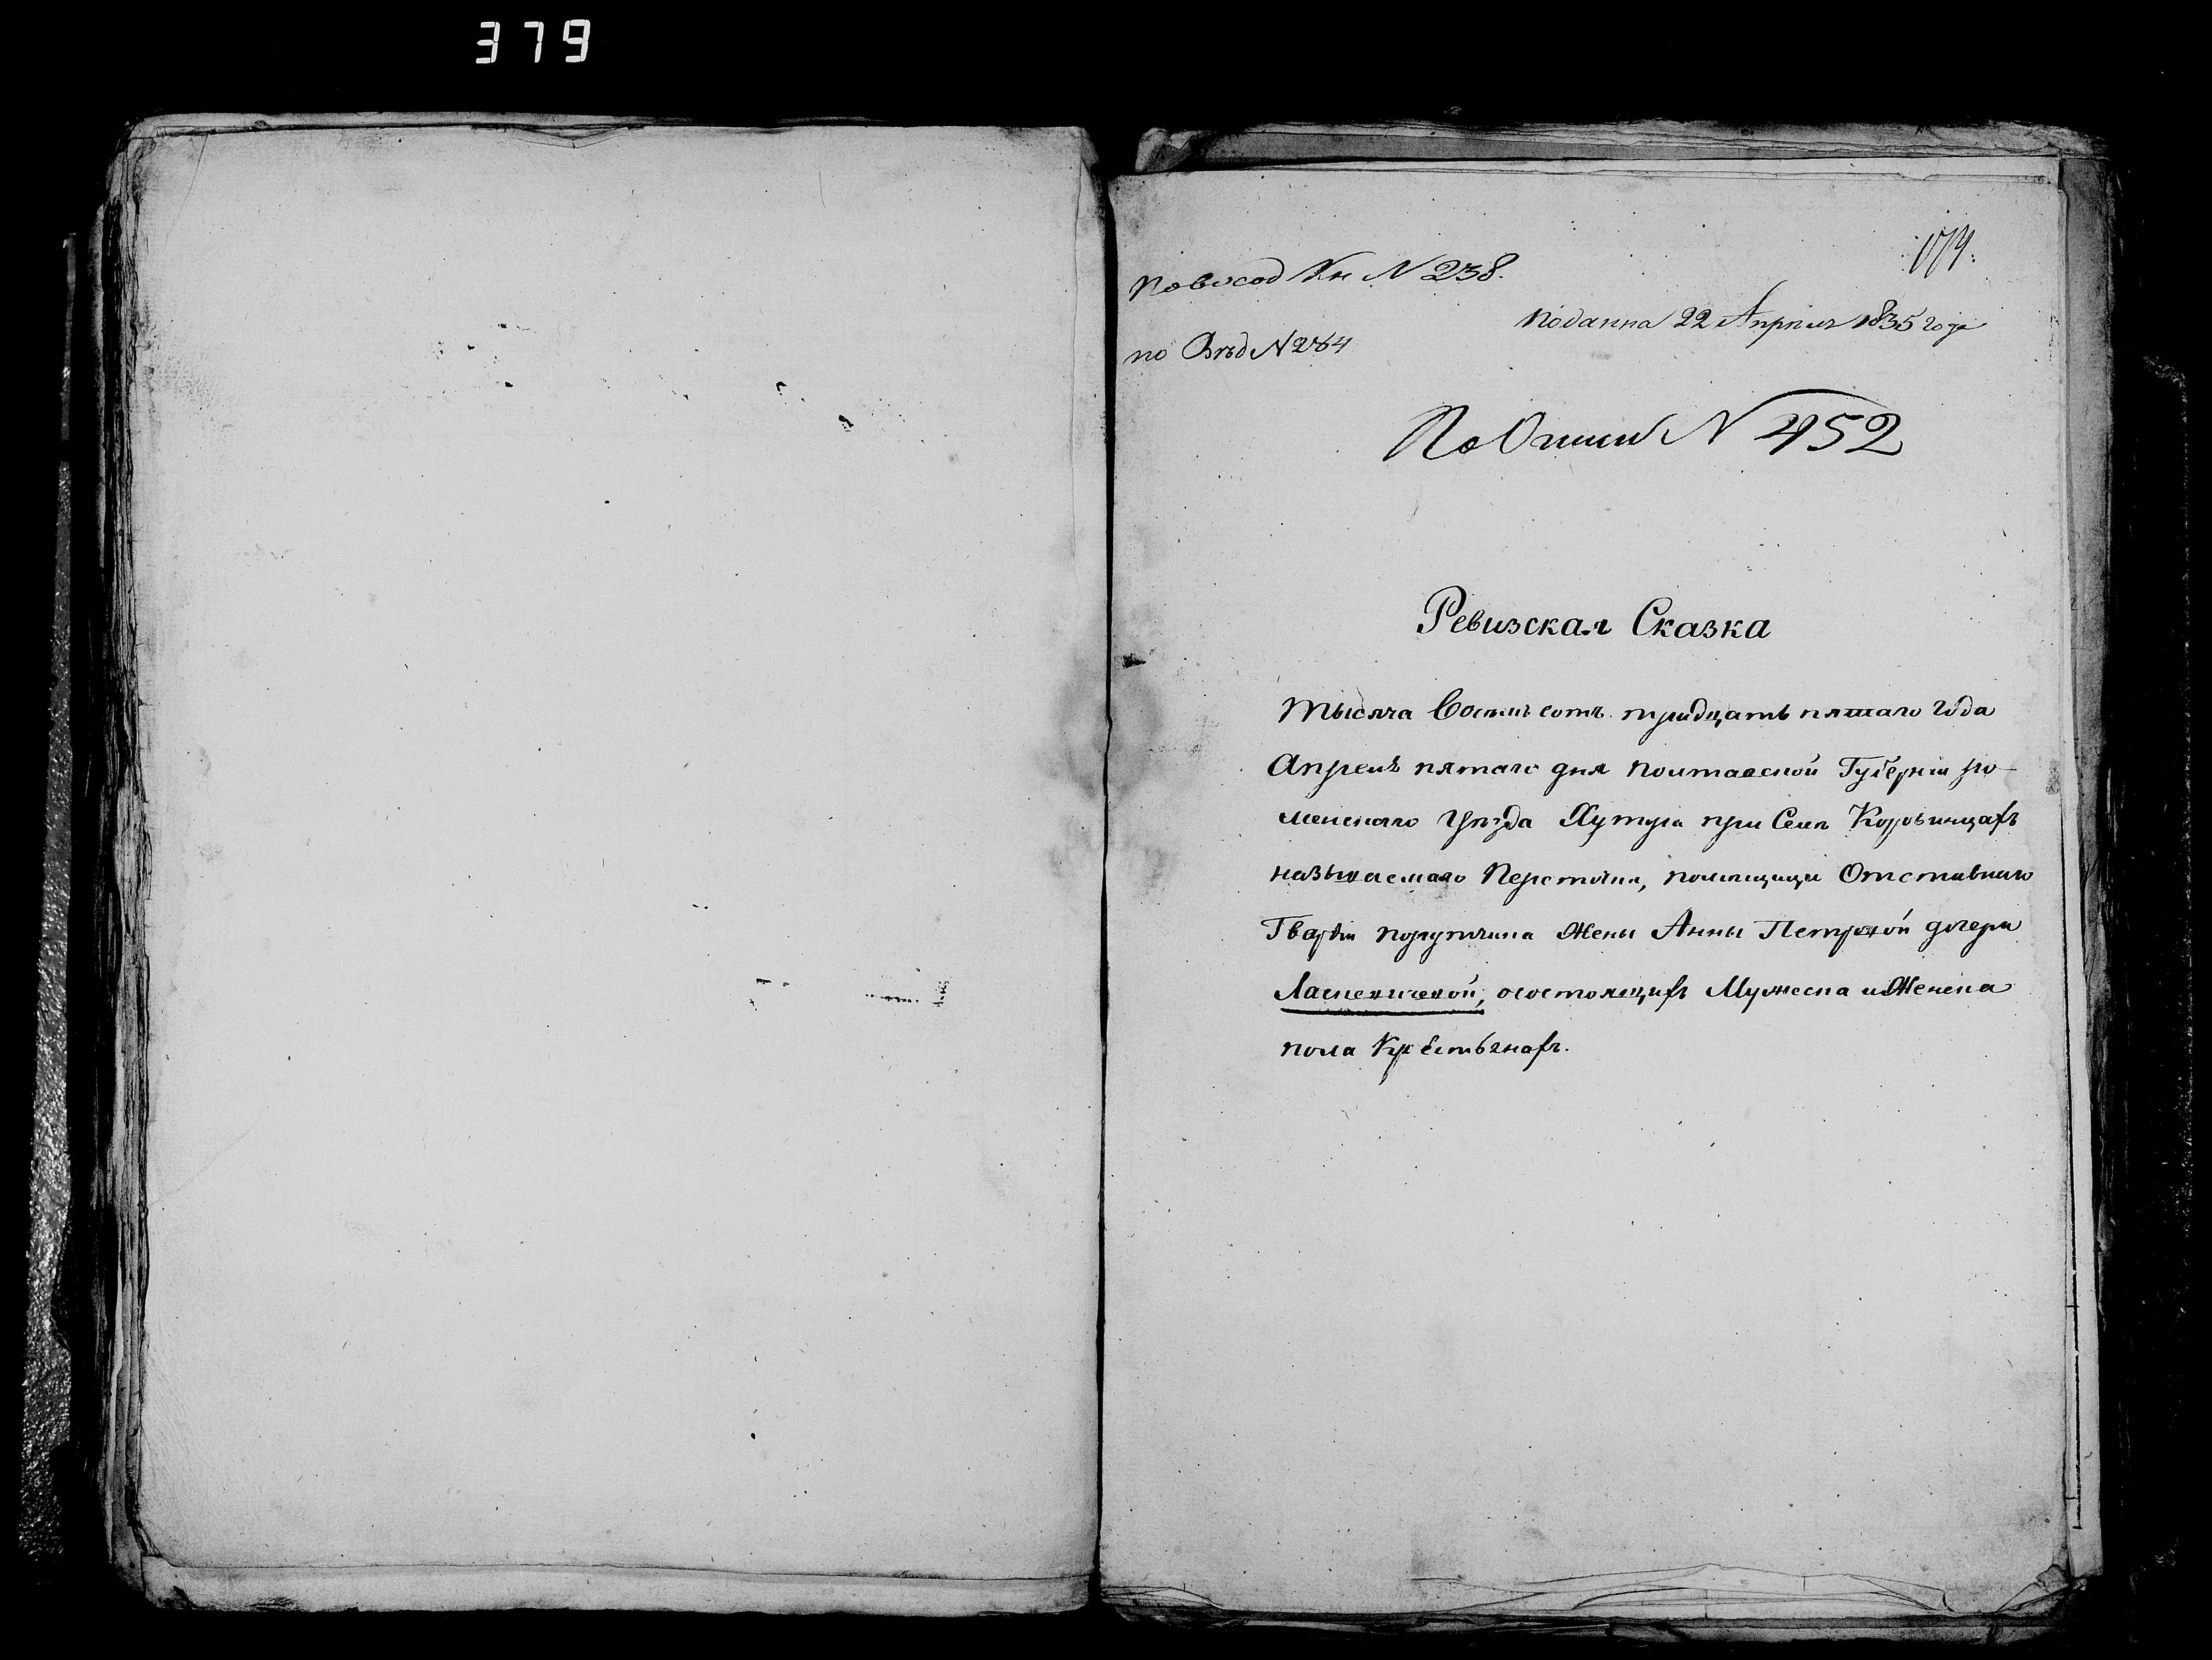 379
174.
По восод Кн N 238.
Поданна 22 Апреля 1835 года
по Вѣд N 264
По Описи N 452
Ревизская Сказка
Тысяча восемь сотъ тридцать пятаго года
Апреля пятаго дня Полтавской Губерніи Ро-
менскаго уѣзда Хутура при Селѣ Коровинцахъ
называемаго Перстоки, помѣщицы Отставнаго
Гвардіи Порутчика Жены Анны Петровой дочери
Ласкевичевой, осостоящихъ Мужеска и Женска
пола Крестьянахъ.